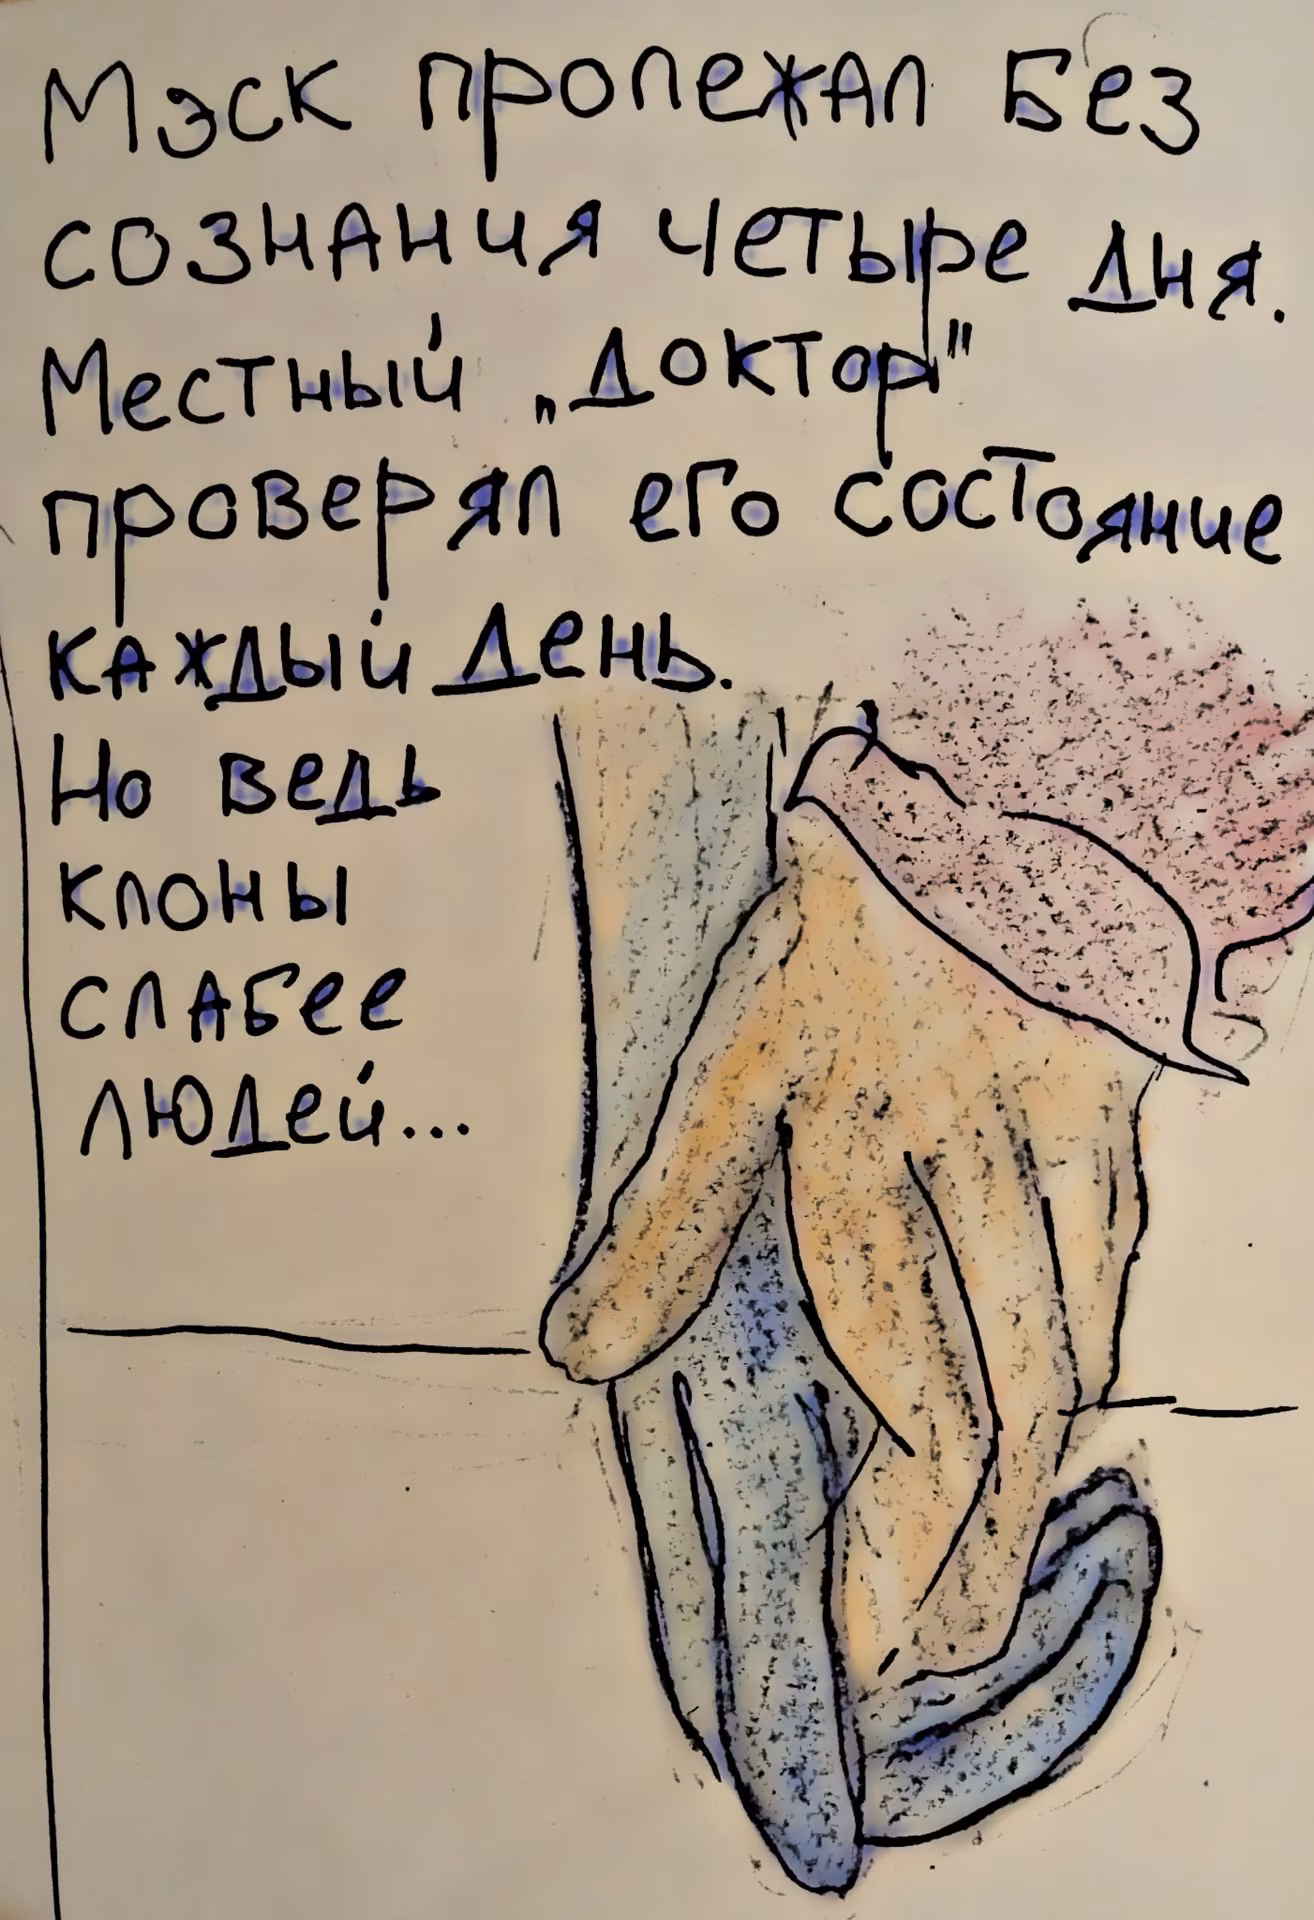 Мэск пролежал без
сознания четыре дня.
Местный „доктор"
проверял его состояние
каждый день.
Но ведь
клоны
слабее
людей...